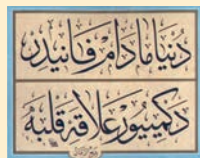 دنیا مادام فانیدر
دكمیور علاقهٔ قلبه